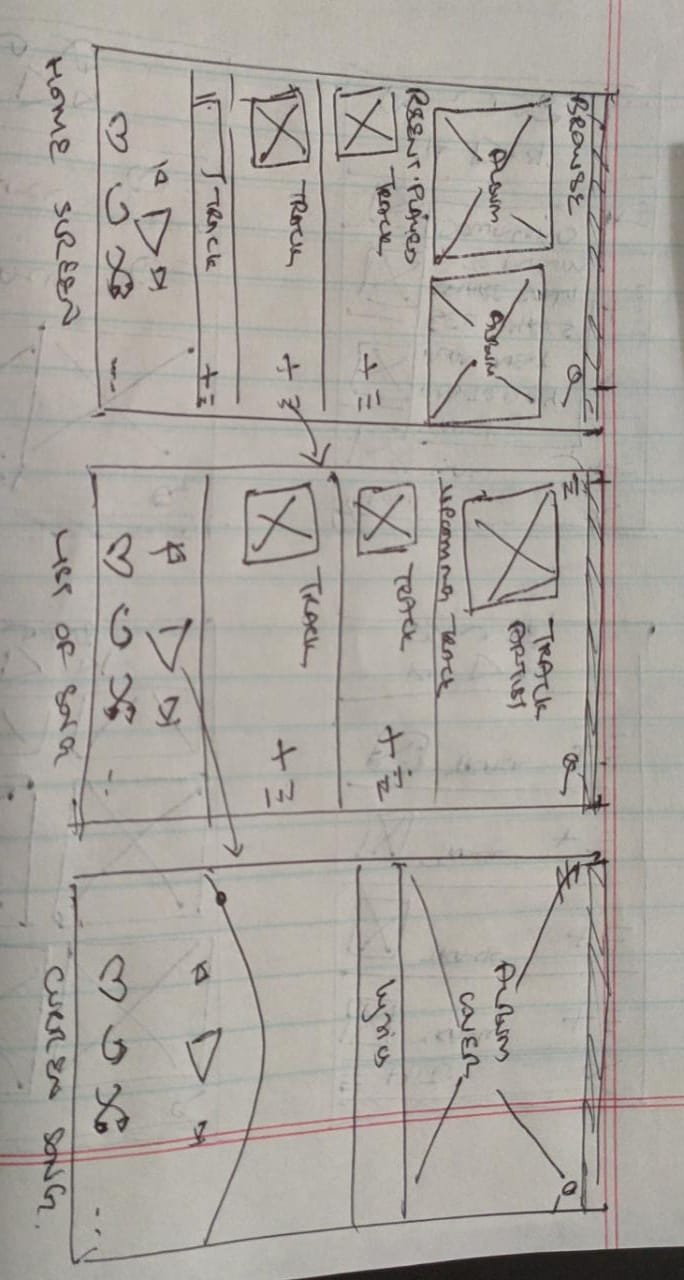 BROWSE
ALBUM
ALBUM
RESENT PLAYED
TRACK
TRACK
TRACK
HOME SCREEN
TRACK
ARTIST
UPCOMING TRACK
TRACK
TRACK
LIST OF SONG
ALBUM
COVER
lyrics
CURREN SONG.